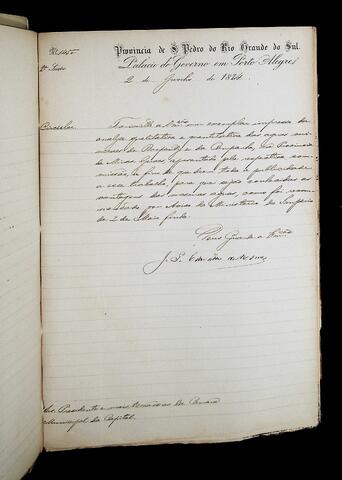 Provincia de S. Pedro do Rio Grande do Sul.
2ª Secção
Palacio do Governo em Porto Alegre,
2 de Junho de 1874.
Circular.
Transmitto a Vmcês um exemplar impresso da
analyse qualitativa e quantitativa das aguas mi-
neraes de Baependy e da Campanha, na Provincia
de Minas Geraes, apresentada pela respectiva com-
missão, a fim de que dêem toda a publicidade
a esse trabalho, para que sejão conhecidas as
vantagens das mesmas aguas, como foi recom-
mendado por Aviso do Ministerio do Imperio
de 2 de Maio findo.
Deus Guarde a Vmcês
J. P. Carvalho de Moraes
Srs. Presidente e mais Vereadores da Camara
Municipal da Capital.